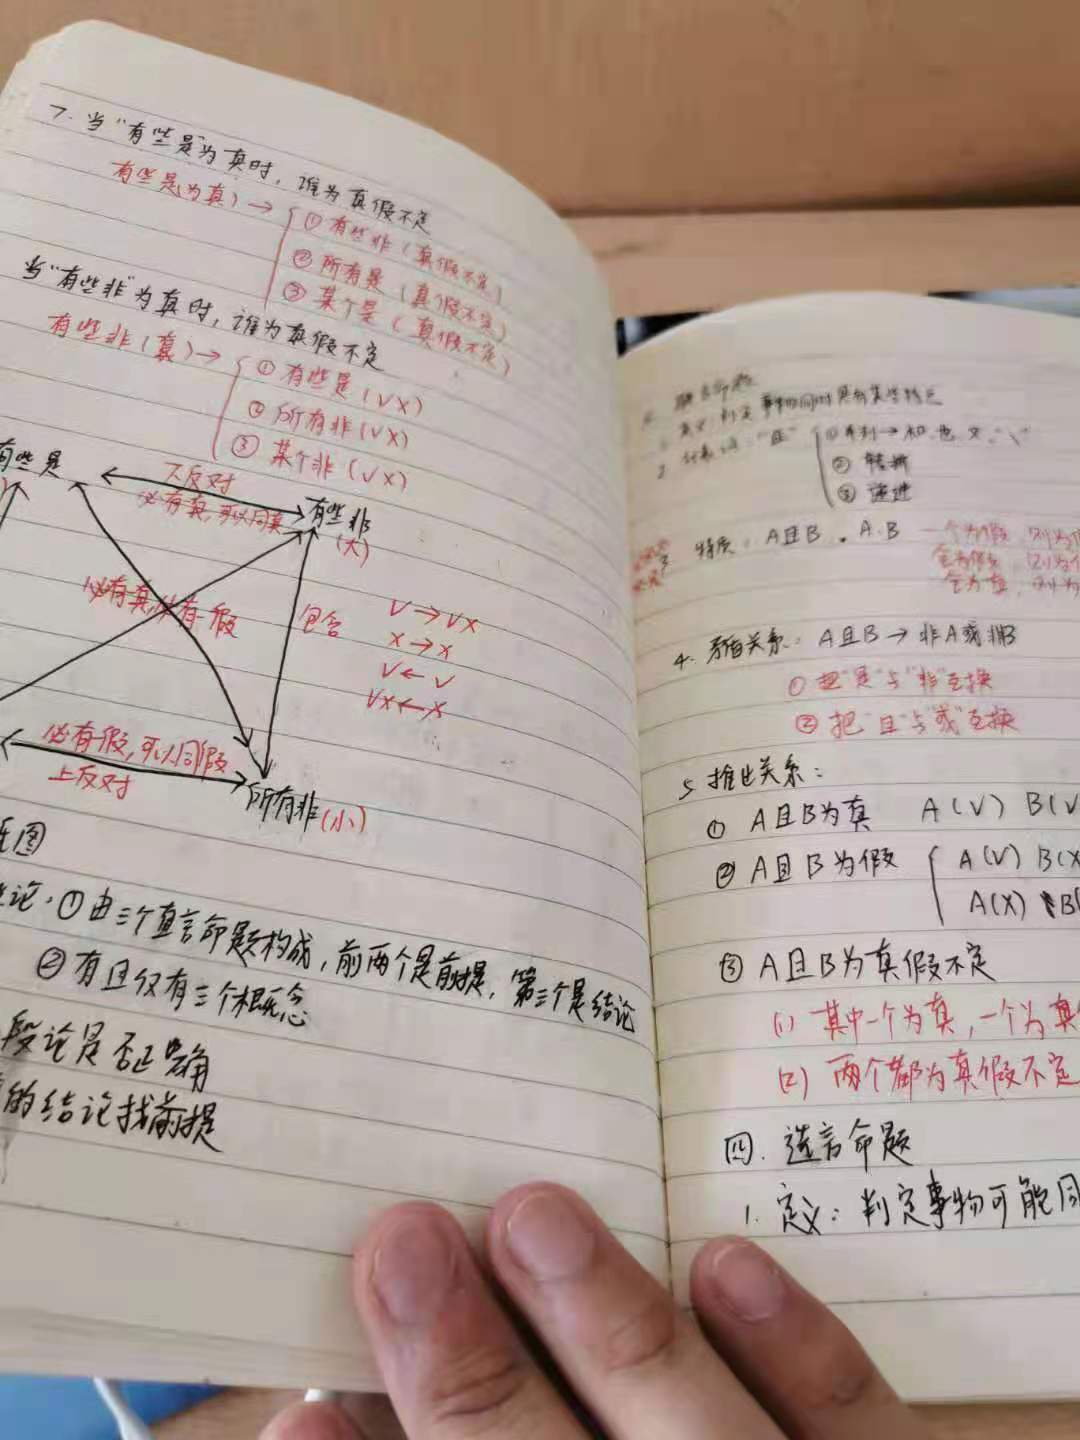 7. 当"有些是"为真时，谁为真假不定
有些是(为真) → ① 有些非 (真假不定)
② 所有是 (真假不定)
③ 某个是 (真假不定)
当"有些非"为真时，谁为真假不定
有些非(真) → ① 有些是 (√×)
② 所有非 (√×)
③ 某个非 (√×)
有些是
下反对
必有真,可以同真
有些非
(大)
必有真,必有假
包含
√→√×
×→×
√←√
√×←×
必有假,可以同假
上反对
所有非(小)
图
论. ① 由三个直言命题构成, 前两个是前提, 第三个是结论
② 有且仅有三个概念
段论是否正确
的结论找前提
1. 定义: 判定事物同时具有某些特点
2. "且" ① 并列→和.也.又."、"
② 转折
③ 递进
3 特质: A且B . A.B 一个为假, 则为
全为假, 则为
全为真, 则为
4. 矛盾关系: A且B → 非A或非B
① 把"是"与"非"互换
② 把"且"与"或"互换
5 推出关系:
① A且B为真 A(√) B(√
② A且B为假 A(√) B(×
A(×) B(
③ A且B为真假不定
(1) 其中一个为真, 一个为真
(2) 两个都为真假不定
四. 选言命题
1. 定义: 判定事物可能同